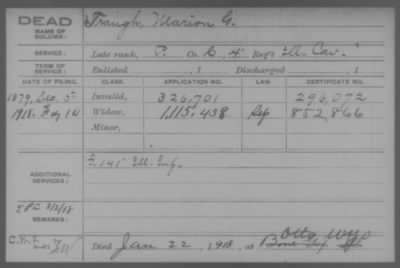 DEAD
NAME OF SOLDIER: Traugh, Marion G.
SERVICE: Late rank, P. Co. L, 4" Reg't Ill. Cav.
TERM OF SERVICE: Enlisted , 1 Discharged , 1
DATE OF FILING. CLASS. APPLICATION NO. LAW. CERTIFICATE NO.
1879, Dec. 5 Invalid, 326,701 296,072
1918, Feb 14 Widow, 1,115,438 Rep 852,866
Minor,
ADDITIONAL SERVICES: F. 141" Ill. Inf.
REMARKS:
Died Jan 22, 1918, at Otto Wyo